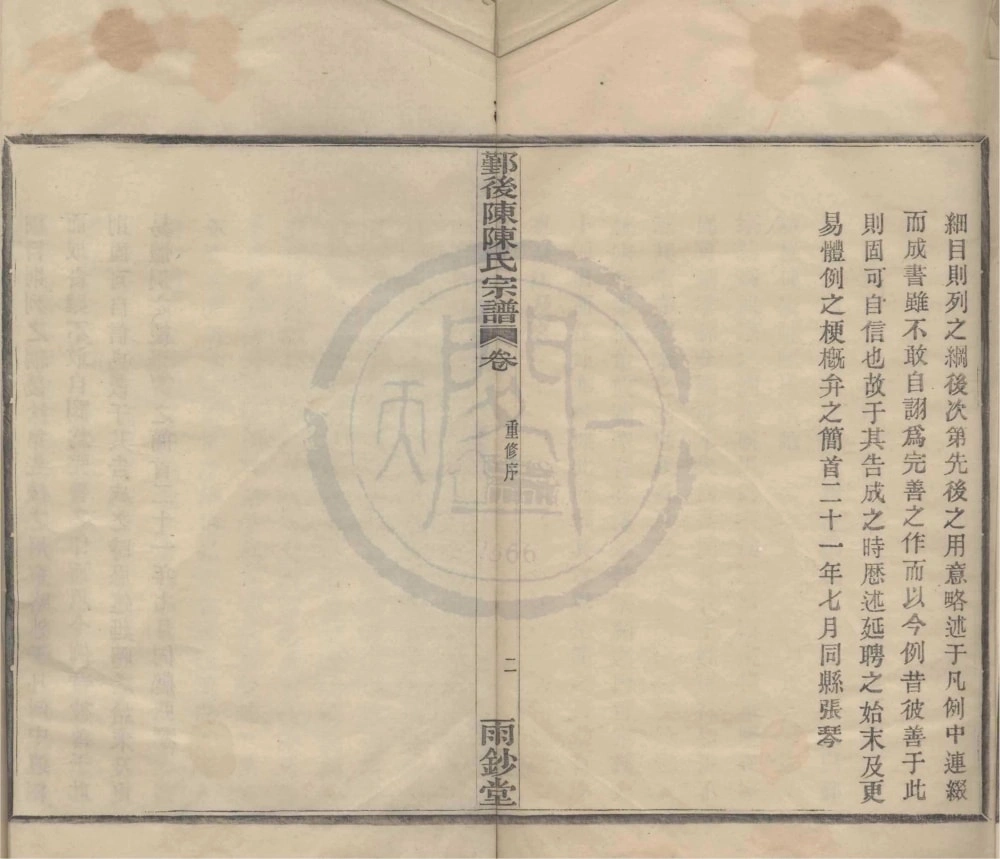 細目則列之綱後次第先後之用意略述于凡例中連綴
而成書雖不敢自詡爲完善之作而以今例昔彼善于此
則固可自信也故于其告成之時歷述延聘之始末及更
易體例之梗概弁之簡首二十一年七月同縣張琴
鄞後陳陳氏宗譜 卷
重修序
二
雨鈔堂
一
天
1566